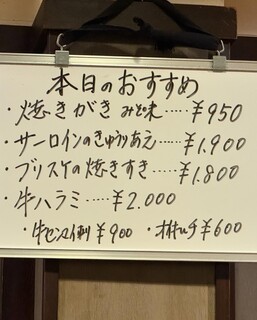 本日のおすすめ
・焼きがき みそ味‥‥‥¥950
・サーロインのきゅうりあえ‥‥¥1.900
・ブリスケの焼きすき‥‥¥1.800
・牛ハラミ‥‥‥¥2.000
・牛センマイ刺 ¥900 ・ ¥600